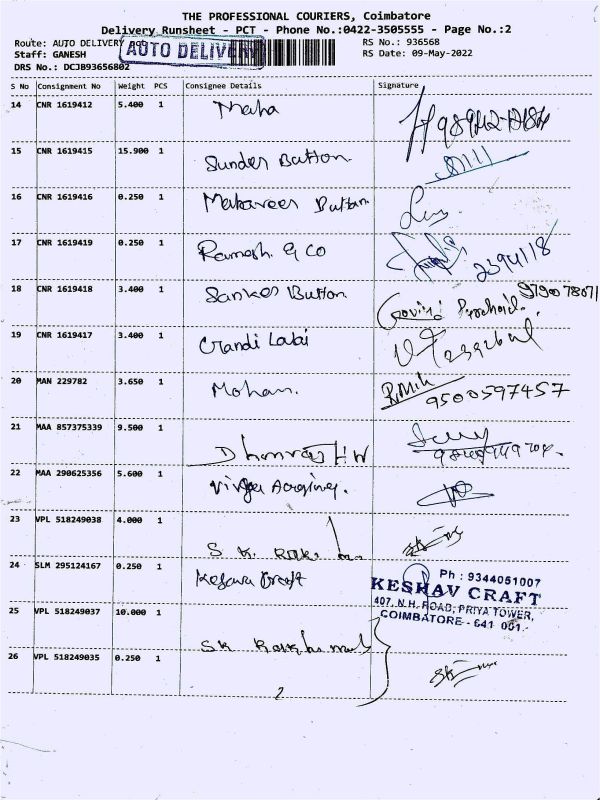 THE PROFESSIONAL COURIERS, Coimbatore
Delivery Runsheet - PCT - Phone No.:0422-3505555 - Page No.:2
Route: AUTO DELIVERY
AUTO DELIVERY
RS No.: 936568
Staff: GANESH
RS Date: 09-May-2022
DRS No.: DCJB93656802
S No Consignment No Weight PCS Consignee Details Signature
14 CNR 1619412 5.400 1 Maha
15 CNR 1619415 15.900 1 Sunder Button
16 CNR 1619416 0.250 1 Mahaveer Button
17 CNR 1619419 0.250 1 Ramesh & Co 2394118
18 CNR 1619418 3.400 1 Sanker Button
19 CNR 1619417 3.400 1
20 MAN 229782 3.650 1 Mohan. 9500597457
21 MAA 857375339 9.500 1 Dhanraj HW
22 MAA 290625356 5.600 1
23 VPL 518249038 4.000 1 S K
24 SLM 295124167 0.250 1 Kesava Craft
Ph : 9344051007
KESHAV CRAFT
407, N.H. ROAD, PRIYA TOWER,
COIMBATORE - 641 001.
25 VPL 518249037 10.000 1 SK
26 VPL 518249035 0.250 1
2